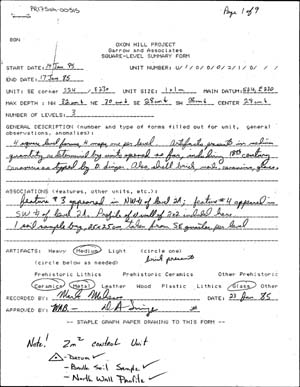 PR175UA-00515
Page 1 of 9
OXON HILL PROJECT
Garrow and Associates
SQUARE-LEVEL SUMMARY FORM
START DATE: Jan 85 UNIT NUMBER: U/1/0/0/0/2/1/0/
END DATE: 17 Jan 85
UNIT: SE corner S24 / E230 UNIT SIZE: 1x1m MAIN DATUM: S24, E230
MAX DEPTH: NW 32cmb NE 30cmb SE 28cmb SW 28cmb CENTER 29cmb
NUMBER OF LEVELS: 3
GENERAL DESCRIPTION (number and type of forms filled out for unit, general
observations, anomalies)
4 square level forms, 4 maps one per level. Artifacts present in medium
quantity as determined by units opened so far, including 18th century
ceramics as typed by A. Also shell, brick, nails, ceramics, glass
ASSOCIATIONS (features, other units, etc.):
feature # 3 appeared in NW¼ of level 2A; feature # 4 appeared in
SW ¼ of level 2A. Profile of N wall of 2x2 included here
1 soil sample bag, 25x25cm taken from SE quarter per level
ARTIFACTS: Heavy Medium Light (circle one)
(circle below as needed) brick present
Prehistoric Lithics Prehistoric Ceramics Other Prehistoric
Ceramics Metal Leather Wood Plastic Lithics Glass Other
RECORDED BY: DATE: 23 Jan 85
APPROVED BY:
-- STAPLE GRAPH PAPER DRAWING TO THIS FORM --
Note! 2m² control Unit
- DATUM ✓
- Soil Sample ✓
- North Wall Profile ✓